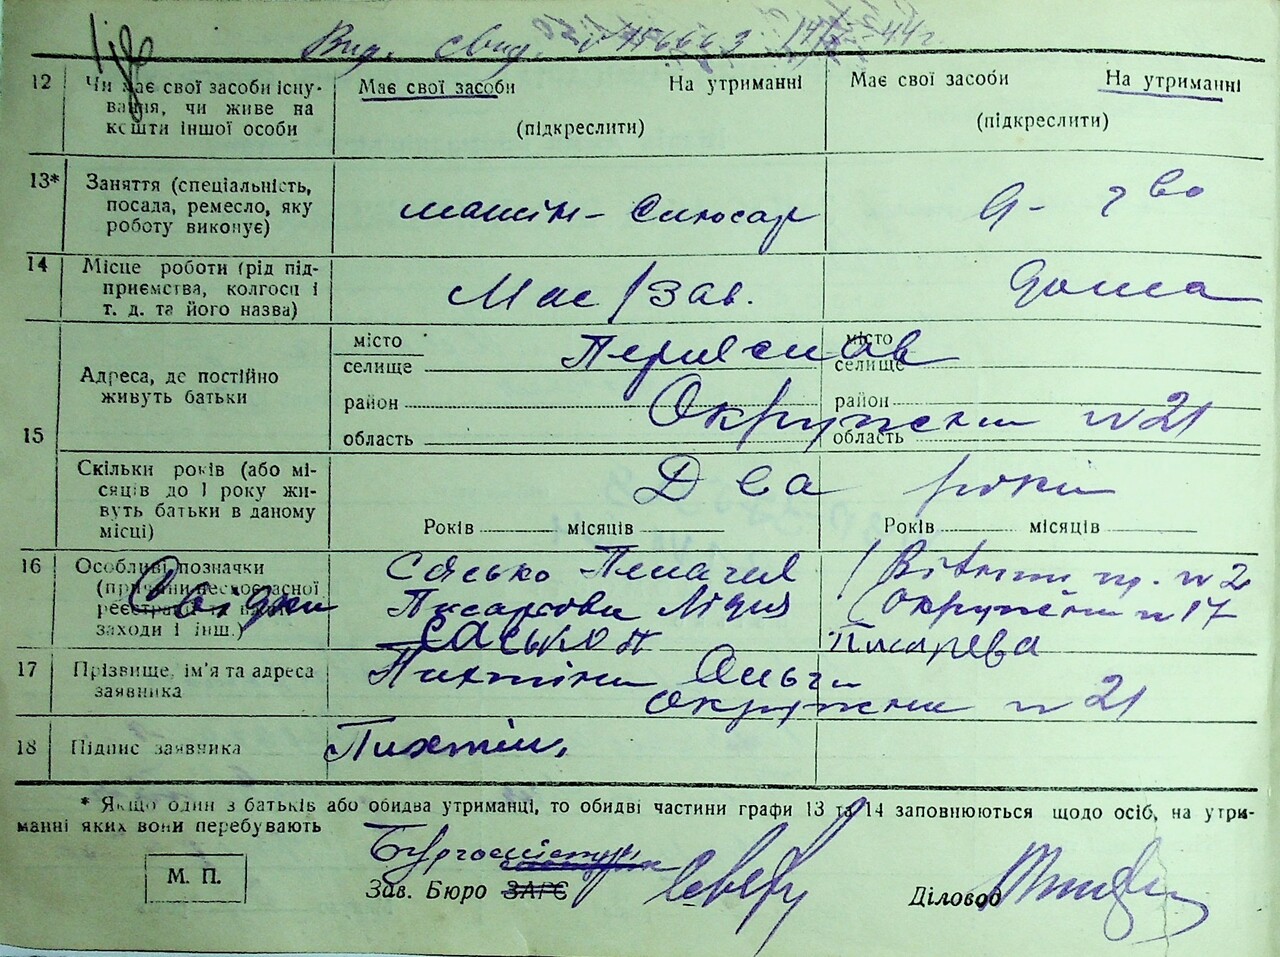 Вид. свид. № 46663
12 Чи має свої засоби існу-
вання, чи живе на
кошти іншої особи
Має свої засоби На утриманні
(підкреслити)
Має свої засоби На утриманні
(підкреслити)
13* Заняття (спеціальність,
посада, ремесло, яку
роботу виконує)
Слюсар
Д-тво
14 Місце роботи (рід під-
приємства, колгосп і
т. д. та його назва)
Мас/зав.
дома
15
Адреса, де постійно
живуть батьки
місто
селище
район
область
місто
селище
район
область
Окружна № 21
Скільки років (або мі-
сяців до 1 року жи-
вуть батьки в даному
місці)
Два роки
Років місяців
Років місяців
16 Особливі позначки
(причини несвоєчасної
реєстрації та вжиті
заходи і інш.)
Свідки
Сасько
Писарєва Лідія
Сасько П
пр. № 2
Окружна № 17
Писарева
17 Прізвище, ім'я та адреса
заявника
Пихтіна Ольга
Окружна № 21
18 Підпис заявника
Пихтіна
* Якщо один з батьків або обидва утриманці, то обидві частини графи 13 та 14 заповнюються щодо осіб, на утри-
манні яких вони перебувають
М. П.
Зав. Бюро ЗАГС
Діловод